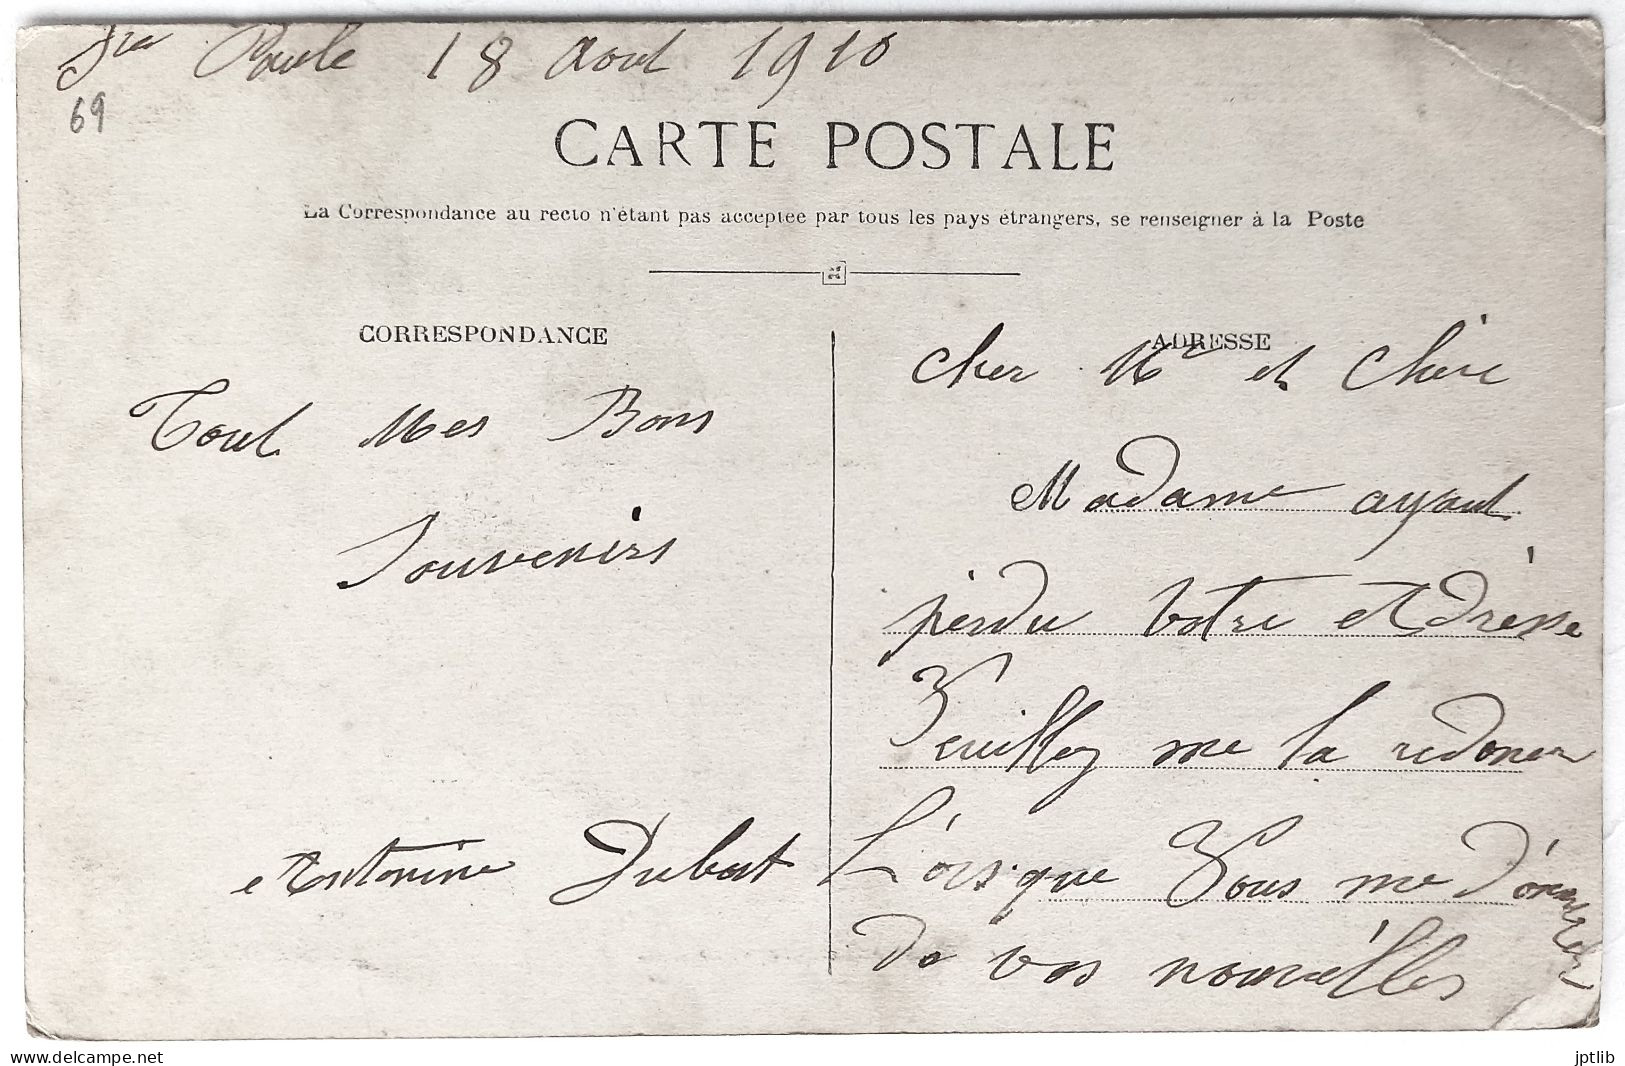 Ste Paule 18 Aout 1910
69
CARTE POSTALE
La Correspondance au recto n'étant pas acceptée par tous les pays étrangers, se renseigner à la Poste
CORRESPONDANCE
Tout Mes Bons
Souvenirs
Antonine Dubost
ADRESSE
Cher Mr et Chère
Madame ayant
perdu votre Adresse
Veuillez me la redoner
Lorsque Vous me donnerez
de vos nouvelles
delcampe.net
jptlib